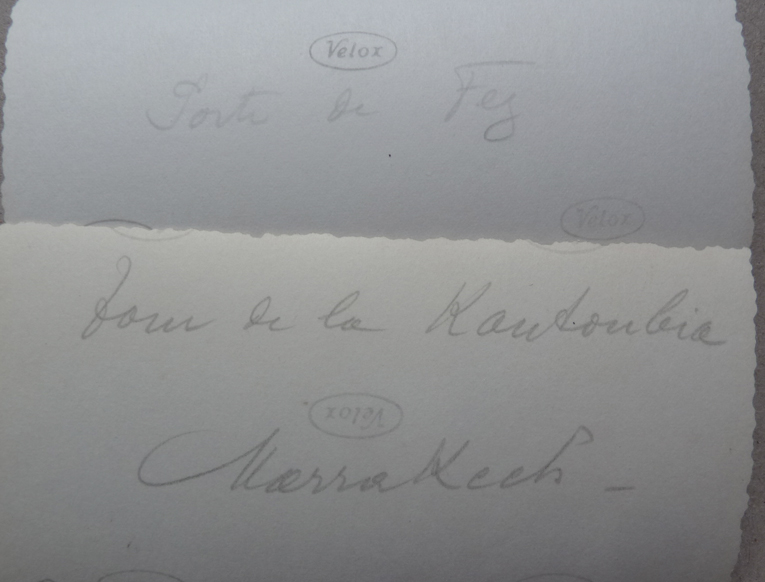 Velox
Porte de Fez
Velox
Tour de la Koutoubia
Velox
Marrakech -